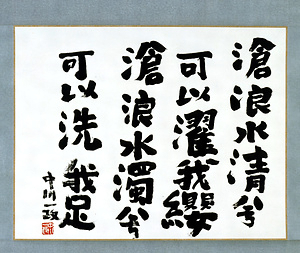 滄浪水清兮
可以濯我纓
滄浪水濁兮
可以洗我足
中川一政